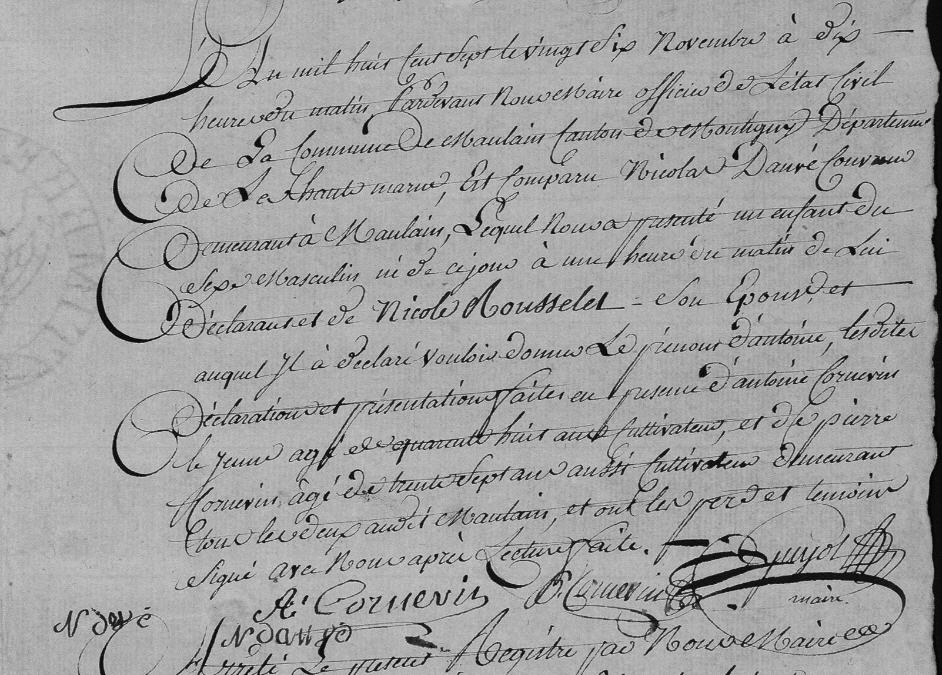 L'An mil huit Cent Sept le vingt Six Novembre à dix
heure du matin, Pardevant Nous Maire officier de L'état Civil
De La Commune de Maulain Canton de Montigny Départeme
De La haute marne, Est Comparu Nicolas Dauvé Couvreur
Demeurant à Maulain, Lequel Nous a présenté un enfant du
Sexe Masculin né de ce jour à une heure du matin de Lui
Déclarant et de Nicole Rousselet = Son Epouse, et
auquel Jl à déclaré vouloir donner Le prénom d'antoine, lesdites
Déclaration et présentation faites en présence d'antoine Cornevin
le jeune agé de quarante huit ans Cultivateur, et de pierre
Cornevin, agé de trente Sept ans aussi Cultivateur demeurant
tous les deux audit Maulain, et ont les perd et temoins
Signé avec Nous après Lecture faite.
A. Cornevin P. Cornevin Pujol
maire.
N dauvé
N dauvé
Arrêté Le présent Registre par Nous Maire